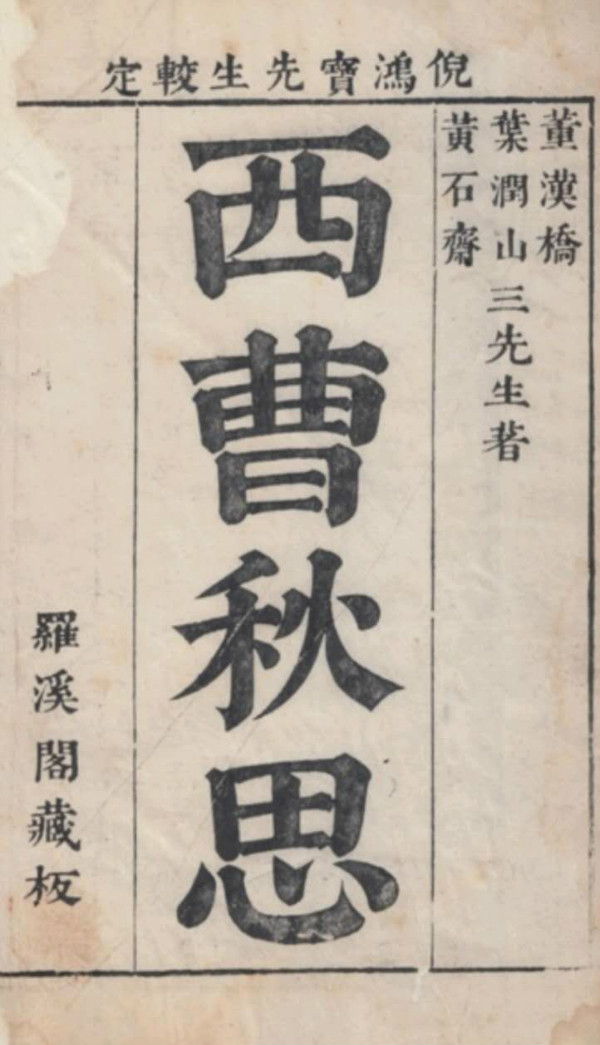 倪鴻寶先生較定
董漢橋
葉潤山三先生著
黃石齋
西曹秋思
羅溪閣藏板